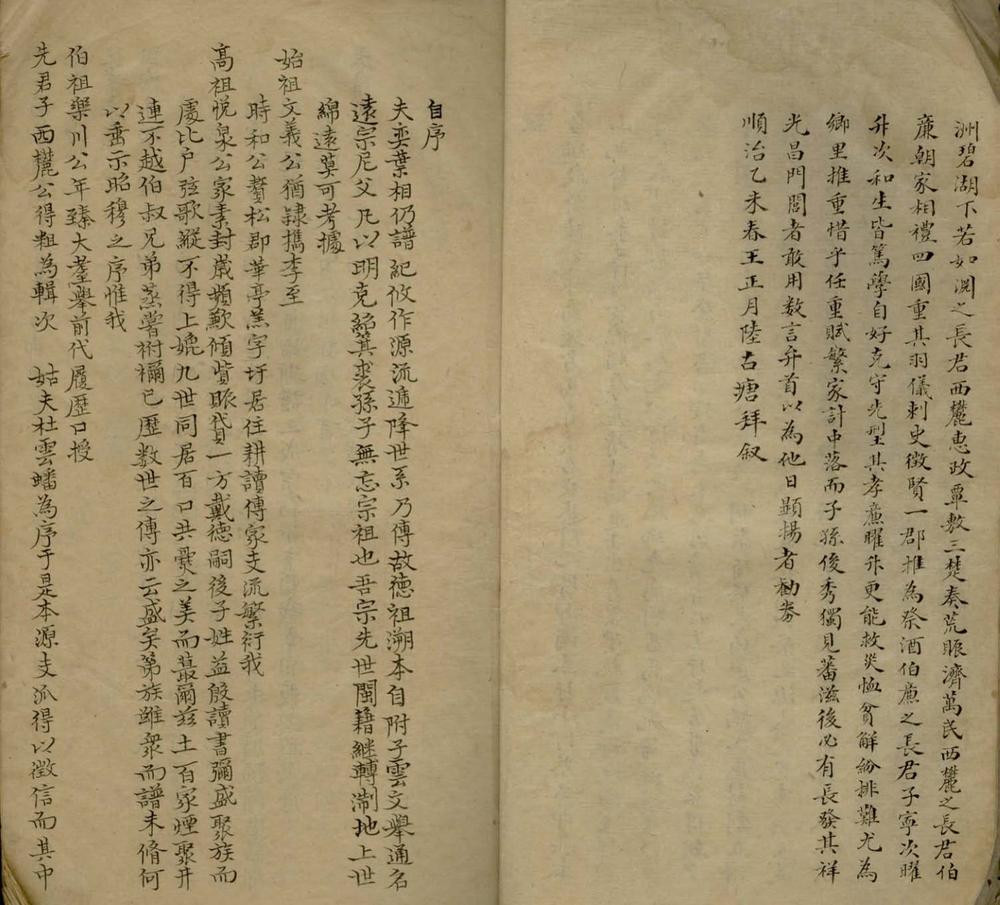 洲碧湖下若如淵之長君西麓惠政覃敷三楚奏荒賑濟萬民西麓之長君伯
廉朝家相禮四國重其羽儀刺史徵賢一郡推為祭酒伯廉之長君子寧次曜
升次和生皆篤學自好克守先型其孝廉曜升更能救災恤貧解紛排難尤為
鄉里推重惜乎任重賦繁家計中落而子孫俊秀獨見蕃滋後必有長發其祥
光昌門閭者敢用数言弁首以為他日顯揚者勸券
順治乙未春王正月陸古塘拜叙
自序
夫奕葉相仍譜紀攸作源流遞降世系乃傳故德祖溯本自附子雲文舉通名
遠宗尼父凡以明克紹箕裘孫子無忘宗祖也吾宗先世閩籍継轉淛地上世
綿遠莫可考據
始祖文義公猶隸檇李至
時和公贅松郡華亭羔字圩居住耕讀傳家支流繁衍我
高祖悦泉公家素封歲頻歉傾貲賑貸一方戴德嗣後子姓益殷讀書彌盛聚族而
處比户弦歌縱不得上媲九世同居百口共爨之美而蕞爾兹土百家煙聚井
連不越伯叔兄弟蒸嘗祔禰已歷数世之傳亦云盛矣第族雖衆而譜未脩何
以垂示昭穆之序惟我
伯祖樂川公年臻大耋舉前代履歷口授
先君子西麓公得粗為輯次 姑夫杜雲蟠為序于是本源支派得以徵信而其中